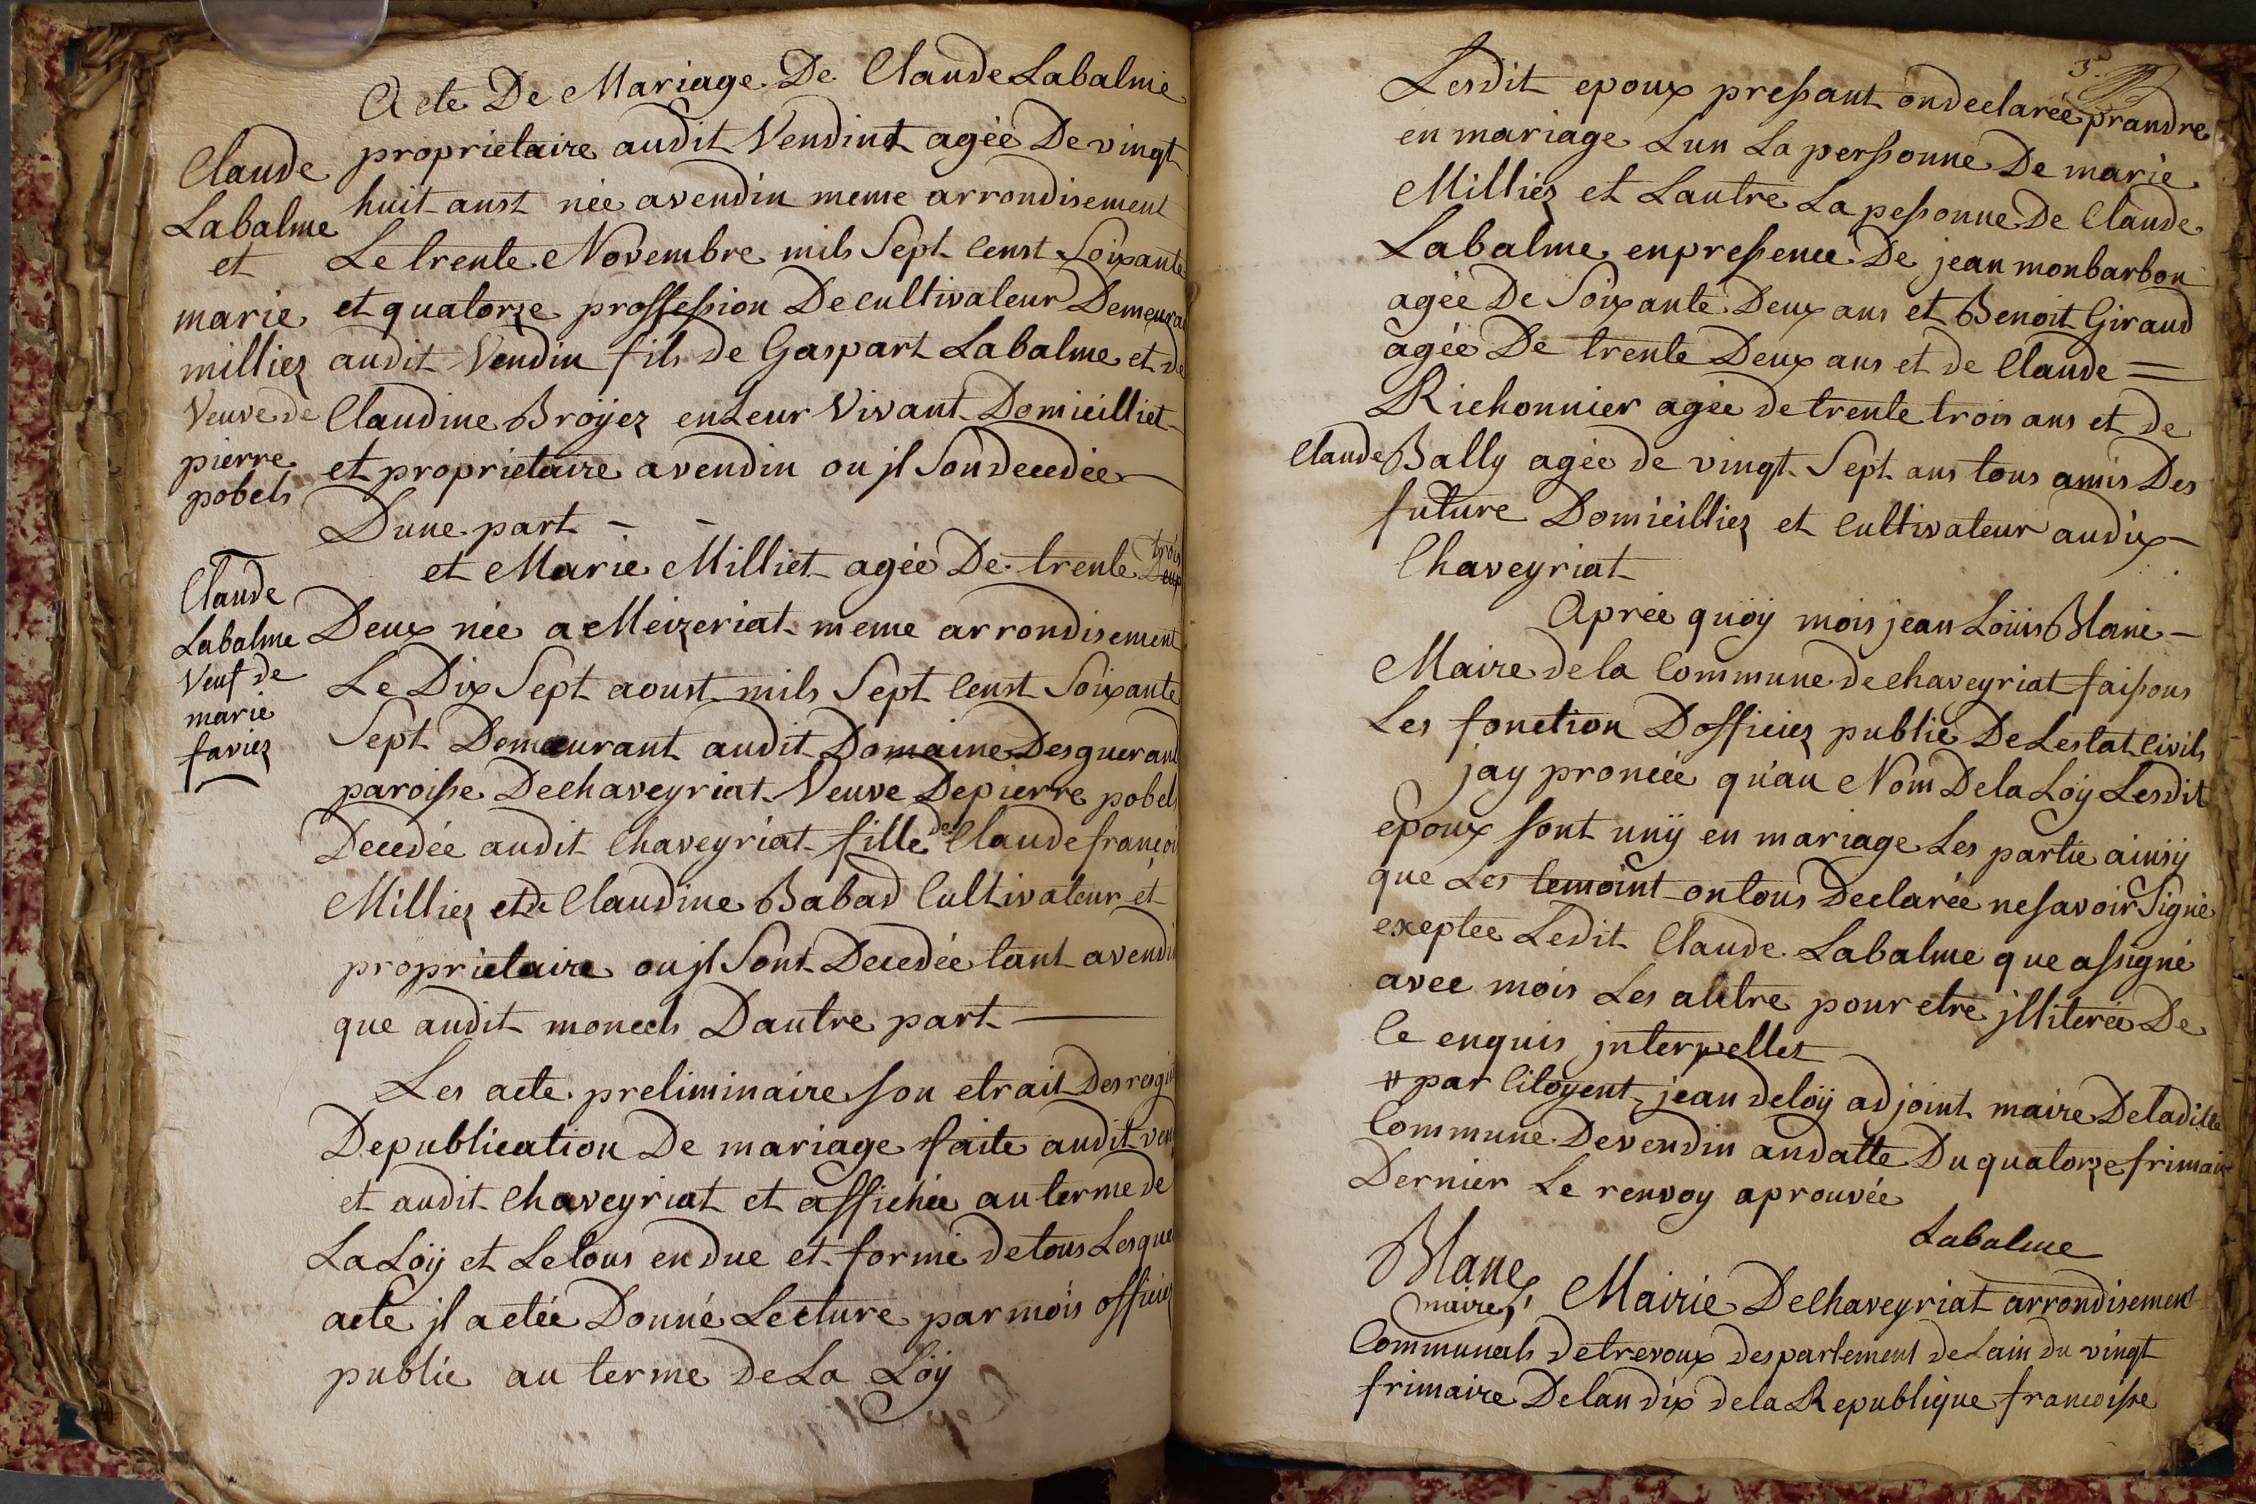 Acte De Mariage De Claude Labalme
propriétaire audit Vendint agée De vingt
huit anst née avendin meme arrondisement
Le trente Novembre mils Sept Censt Soixante
et quatorze proffession De cultivateur Demeura
audit Vendin fils de Gaspart Labalme et de
Claudine Broyez en Leur Vivant Domicilliet
et proprietaire avendin ou jl Son decedée
Dune part
et Marie Milliet agée De trente trois Deux
Deux née a Meizeriat meme arrondisement
Le Dix Sept aoust mils Sept Censt Soixante
Sept Demeurant audit Domaine Desguerand
paroisse Dechaveyriat Veuve De pierre pobels
Decedée audit Chaveyriat fille de Claude françoi
Milliez et de Claudine Babad Cultivateur et
proprietaire ou jl Sont Decedée tant avendin
que audit moncels Dautre part
Les acte preliminaire son etrait Des regi
De publication De mariage faite audit ven
et audit Chaveyriat et affichée au terme de
La Loÿ et Le tous en due et forme de tous Lesque
acte jl a etée Donné Lecture par mois officiez
public au terme De La Loÿ
Claude
Labalme
et
marie
milliez
Veuve de
pierre
pobels
Claude
Labalme
Veuf de
marie
faviez
3.
Lesdit epoux pressant on declarée prandre
en mariage Lun La perssonne De marie
Milliez et Lautre La pessonne De Claude
Labalme en pressence De jean monbarbon
agée De Soixante Deux ans et Benoit Giraud
agée De trente Deux ans et de Claude =
Richonnier agée de trente trois ans et de
Claude Bally agée de vingt Sept ans tous amis Des
future Domicilliez et Cultivateur audix
Chaveyriat
Aprée quoÿ mois jean Loüis Blanc
Maire de la Commune de chaveyriat faissons
Les fonction Dofficiez public De Lestat Civils
jay proncée qu'au Nom De la Loÿ Lesdit
epoux sont unÿ en mariage Les partie ainsÿ
que Les temoint on tous Declarée ne savoir Signé
exeptee Ledit Claude Labalme que assigné
avec mois Les alitre pour etre jlliterée De
Ce enquis jnterpellez
# par Citoyent jean deloÿ adjoint maire De ladite
Commune De vendin andatte Du quatorze frimaire
Dernier Le renvoy aprouvée
Labalme
Blanc,
maire,
Mairie De Chaveyriat arrondisement
Communals de trevoux despartement de Lain du vingt
frimaire De lan dix de la Republique francoisse